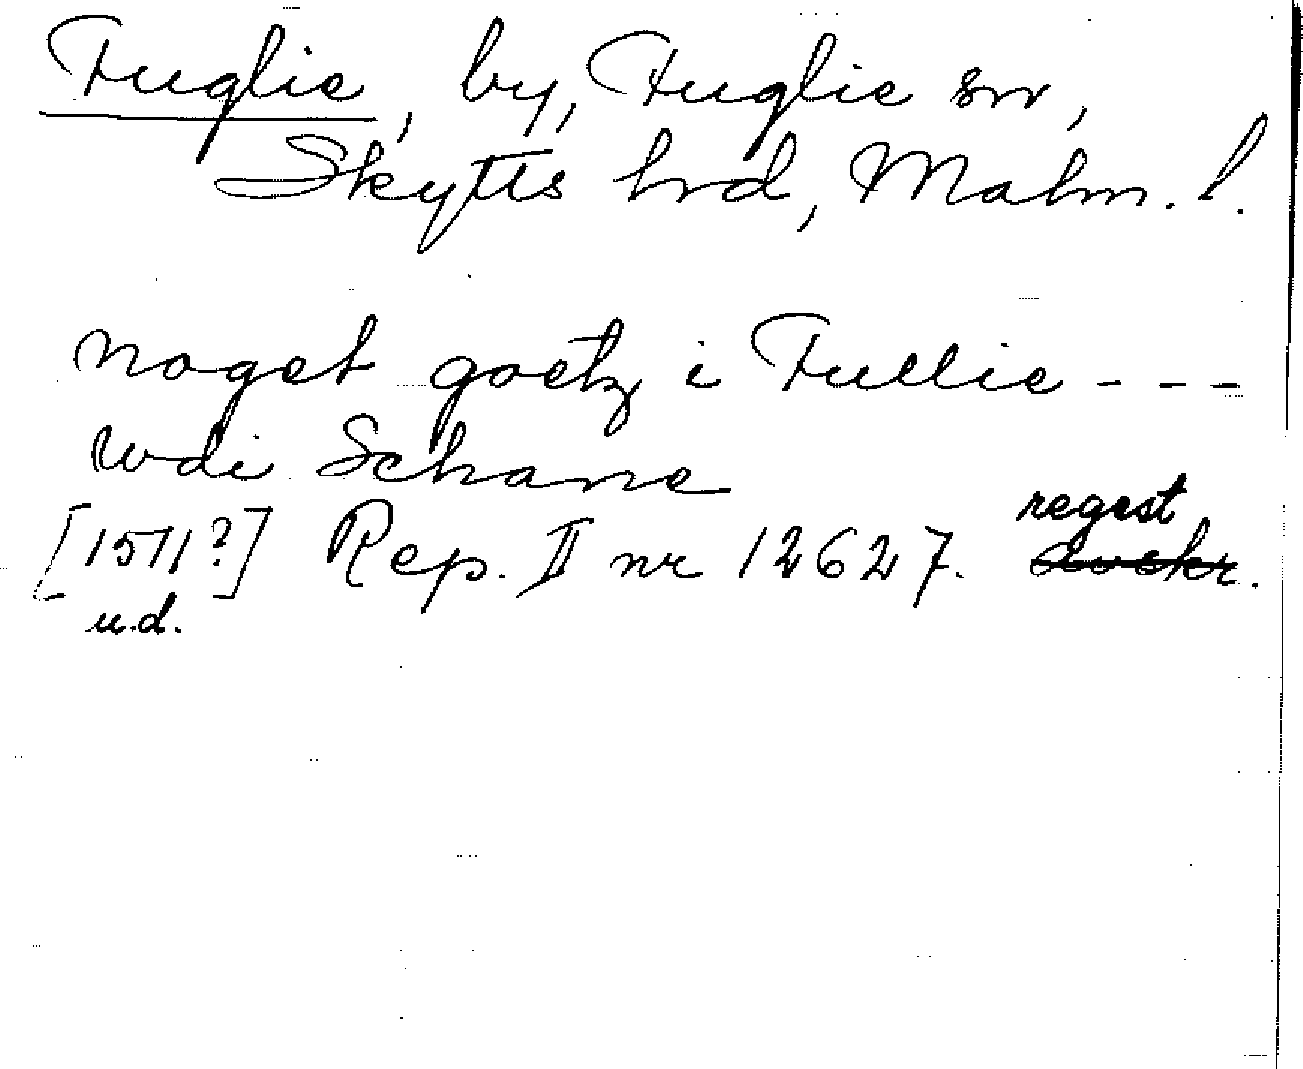 Fuglie, by, Fuglie sn,
Skytts hrd, Malm. l.
noget goetz i Fullie - - -
wdi Schane
regest
[1511?] Rep. II nr 12627. avskr.
u.d.